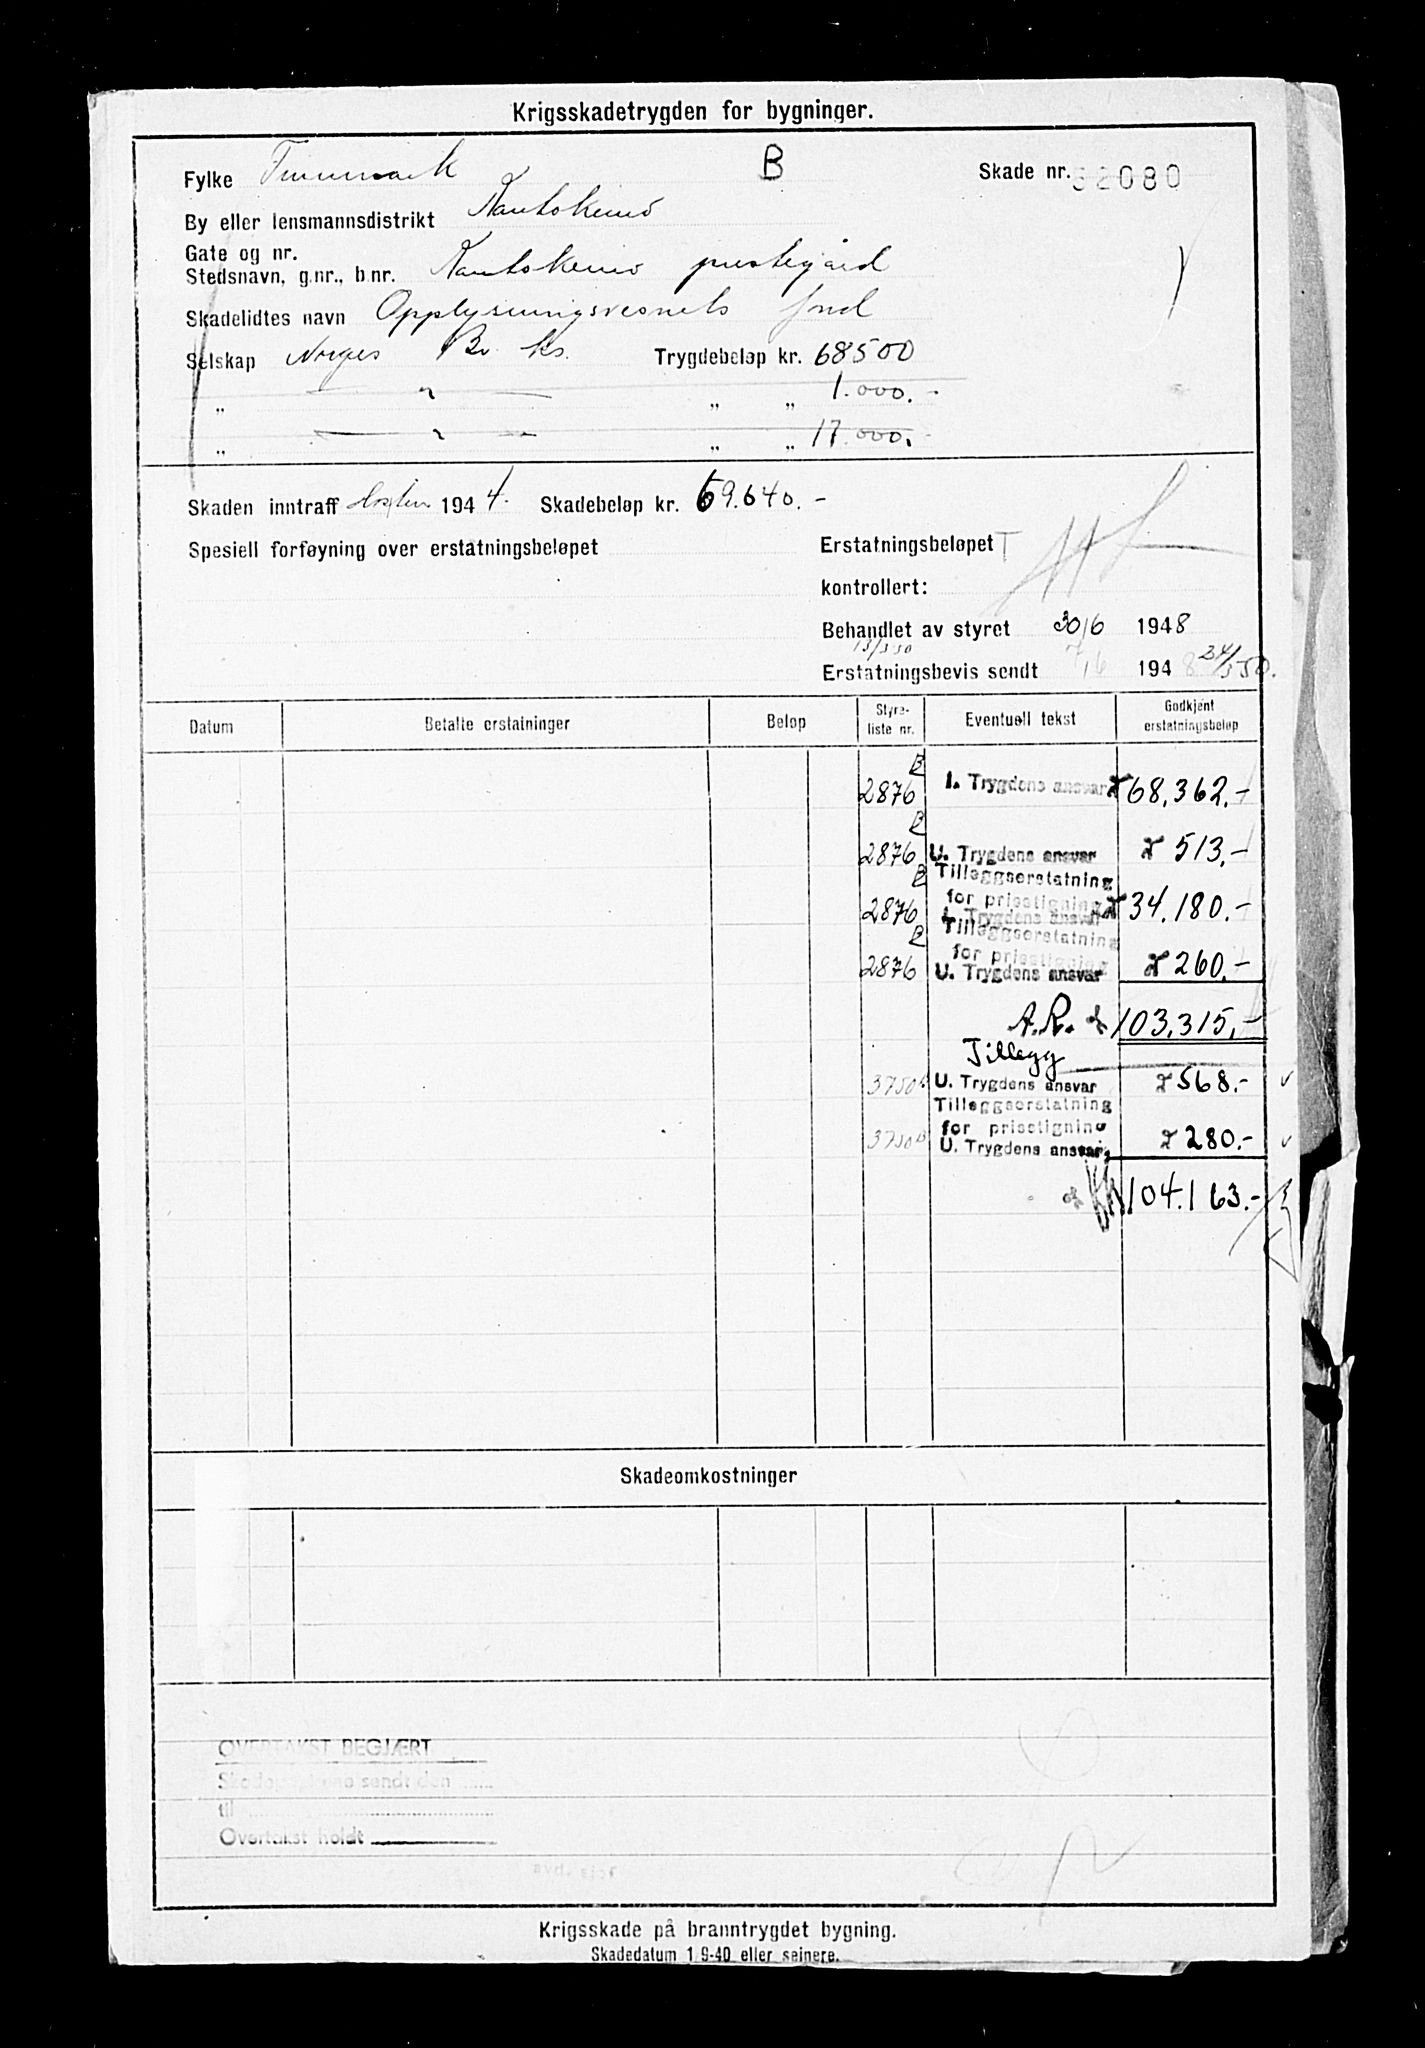 Krigsskadetrygden for bygninger.
Fylke Finnmark B Skade nr. 52080
By eller lensmannsdistrikt Kautokeino
Gate og nr.
Stedsnavn, g.nr., b.nr. Kautokeino prestegård
Skadelidtes navn Opplysningsvesnets fond
Selskap Norges Br. ks. Trygdebeløp kr. 68500
„ — " — „ „ 1.000.-
„ — " — „ „ 17.000.-
Skaden inntraff Høsten 1944. Skadebeløp kr. 69.640.-
Spesiell forføyning over erstatningsbeløpet Erstatningsbeløpet
kontrollert:
Behandlet av styret 30/6 1948
13/3 50
Erstatningsbevis sendt 7/6 1948 24/3 50.
Datum Betalte erstatninger Beløp Styre-liste nr. Eventuell tekst Godkjent erstatningsbeløp
B
2876 I. Trygdens ansvar 68.362.-
B
2876 U. Trygdens ansvar 513.-
B Tilleggserstatning
for prisstigning
2876 I. Trygdens ansvar 34.180.-
B Tilleggserstatning
for prisstigning
2876 U. Trygdens ansvar 260.-
A.R. 103.315.-
Tillegg
3750 B U. Trygdens ansvar 568.- v
Tilleggserstatning
for prisstigning
3750 B U. Trygdens ansvar 280.- v
104.163.-
Skadeomkostninger
OVERTAKST BEGJÆRT
Skadepapirene sendt den
til
Overtakst holdt
Krigsskade på branntrygdet bygning.
Skadedatum 1.9-40 eller seinere.